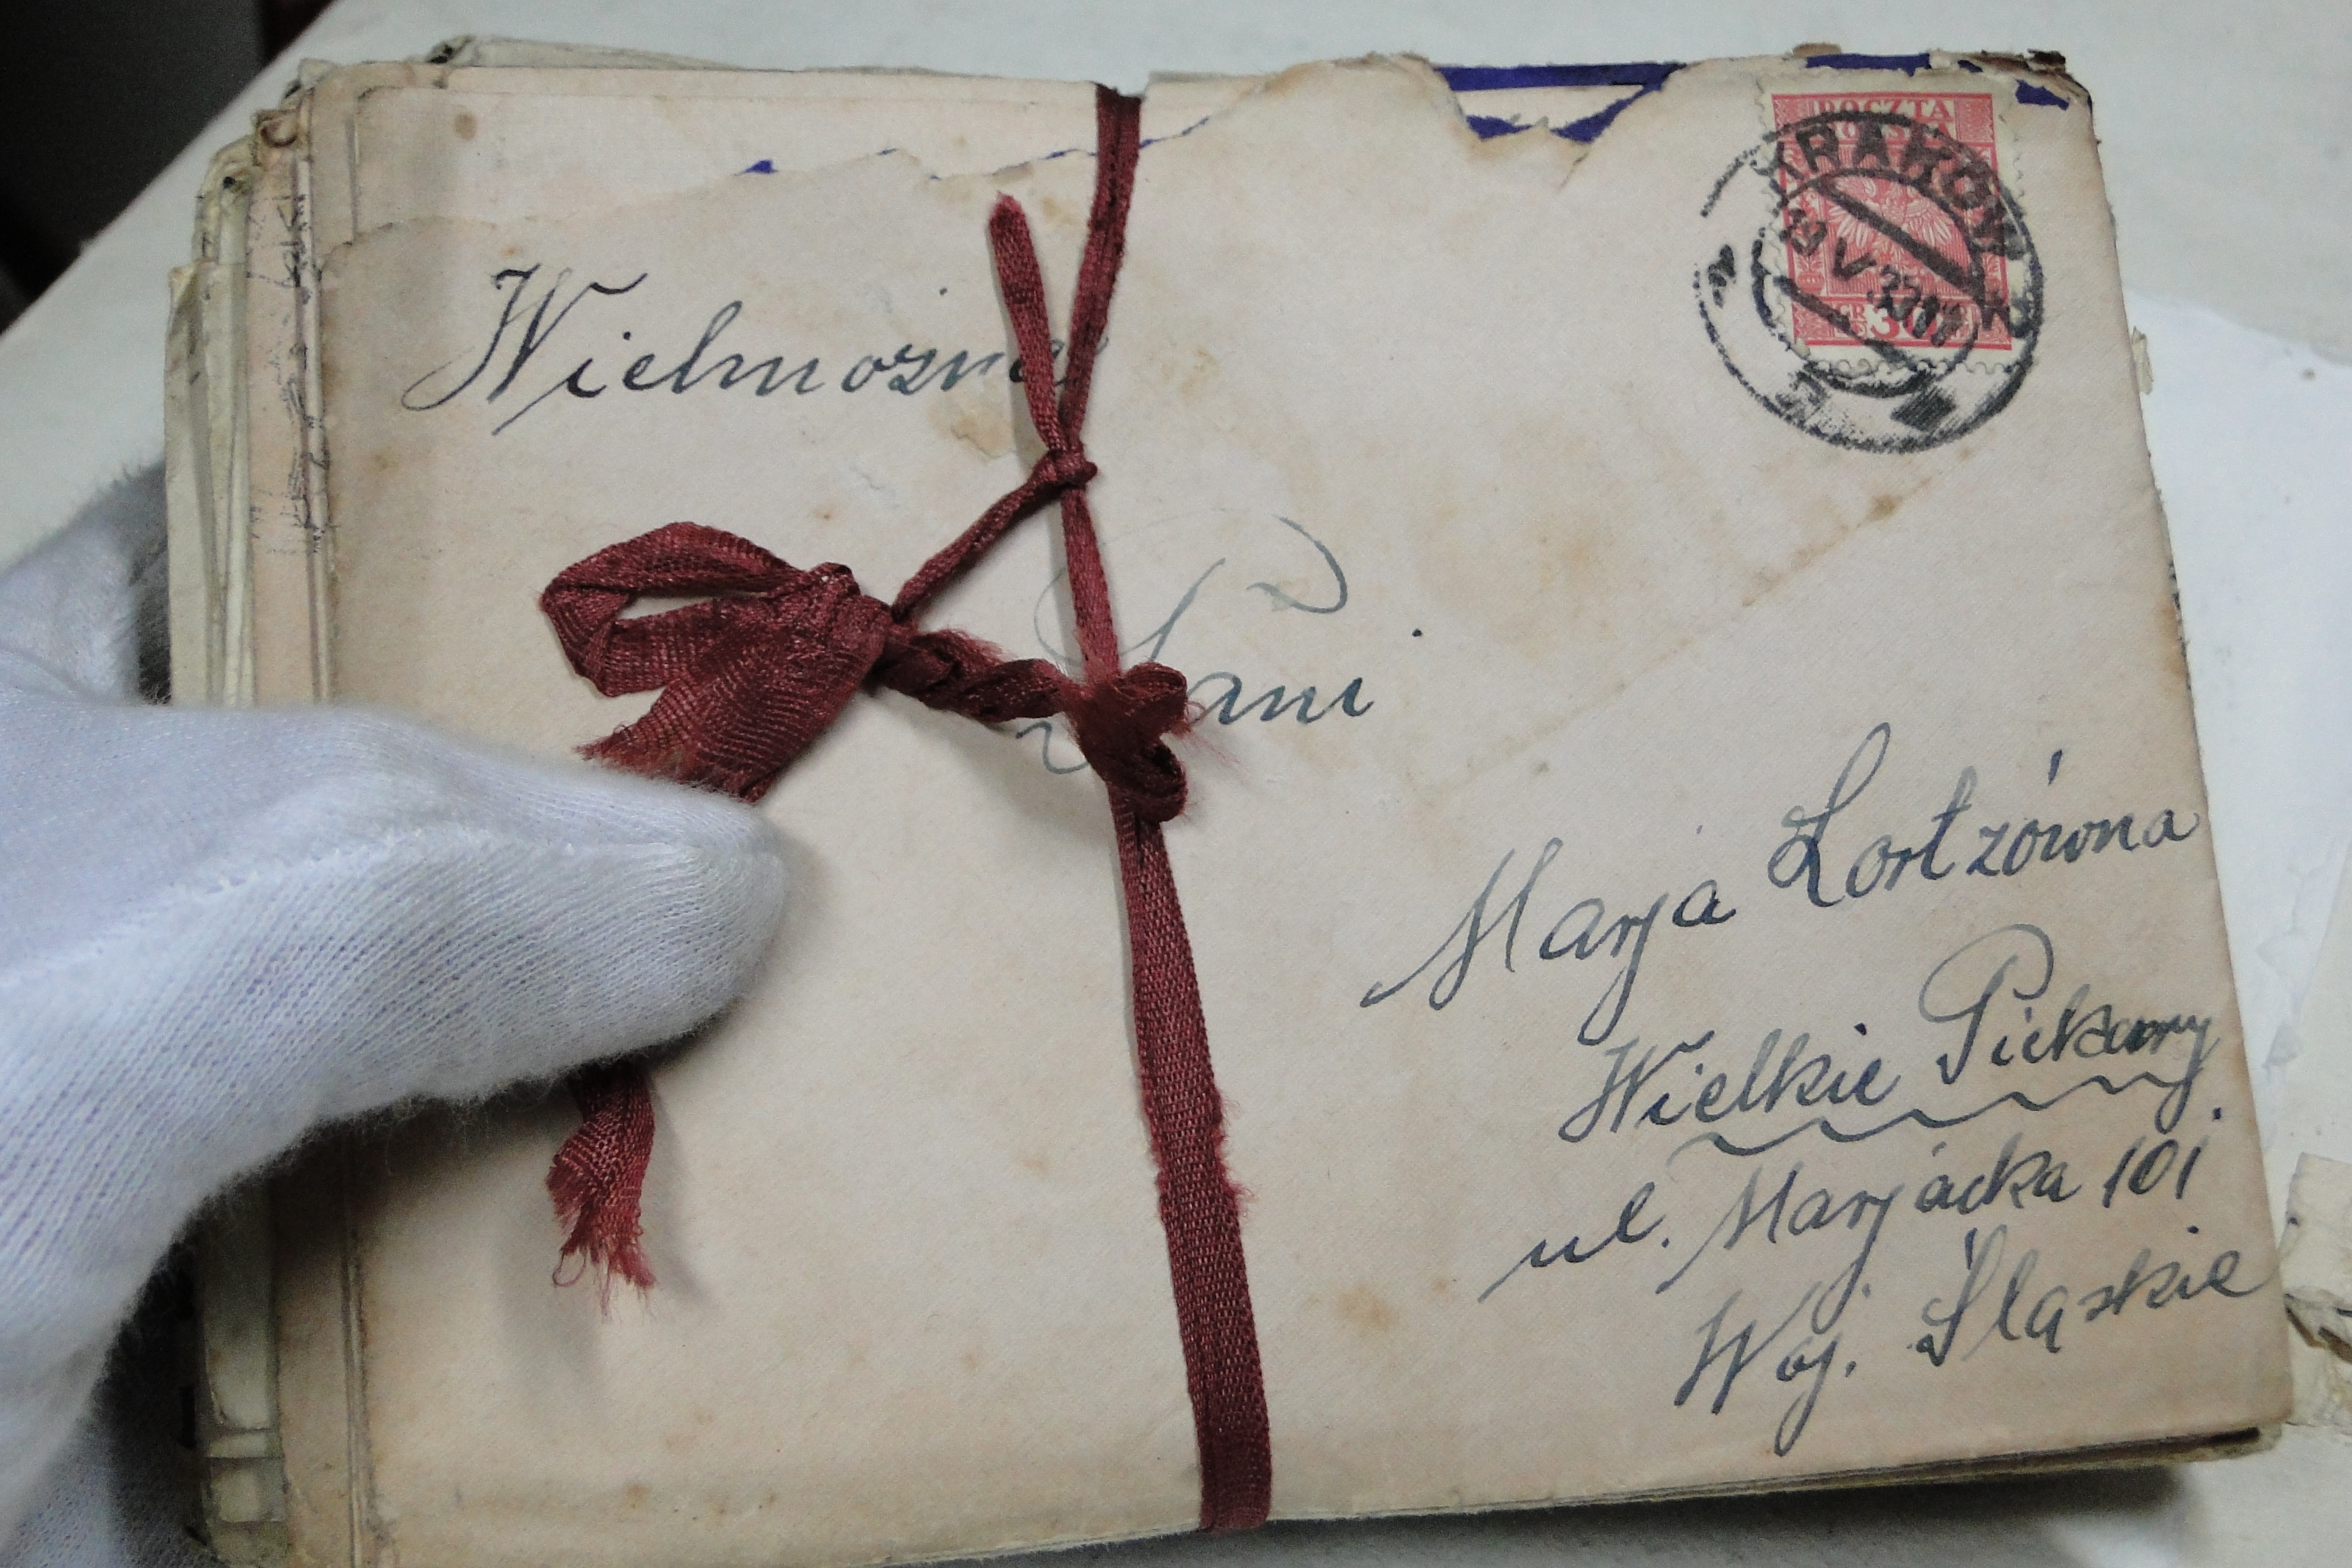 POCZTA
POLSKA
KRAKÓW
19 V 32
GR 30
Wielmożna
Pani
Marja Lortzówna
Wielkie Piekary.
ul. Marjacka 101
Woj. Śląskie